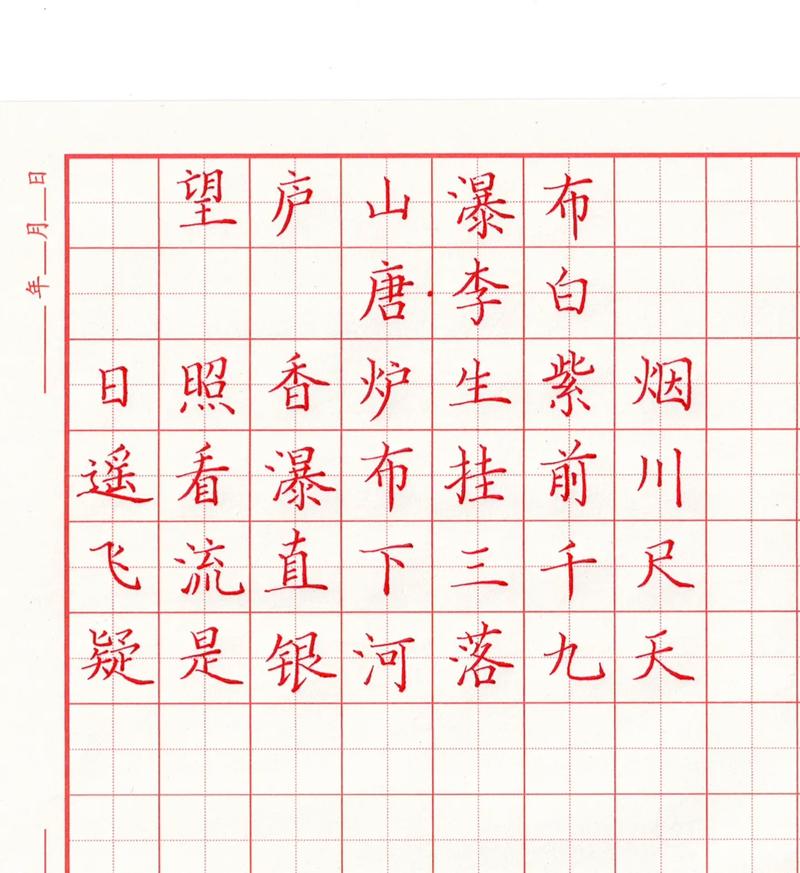 望庐山瀑布
唐·李白
日照香炉生紫烟
遥看瀑布挂前川
飞流直下三千尺
疑是银河落九天
年 月 日